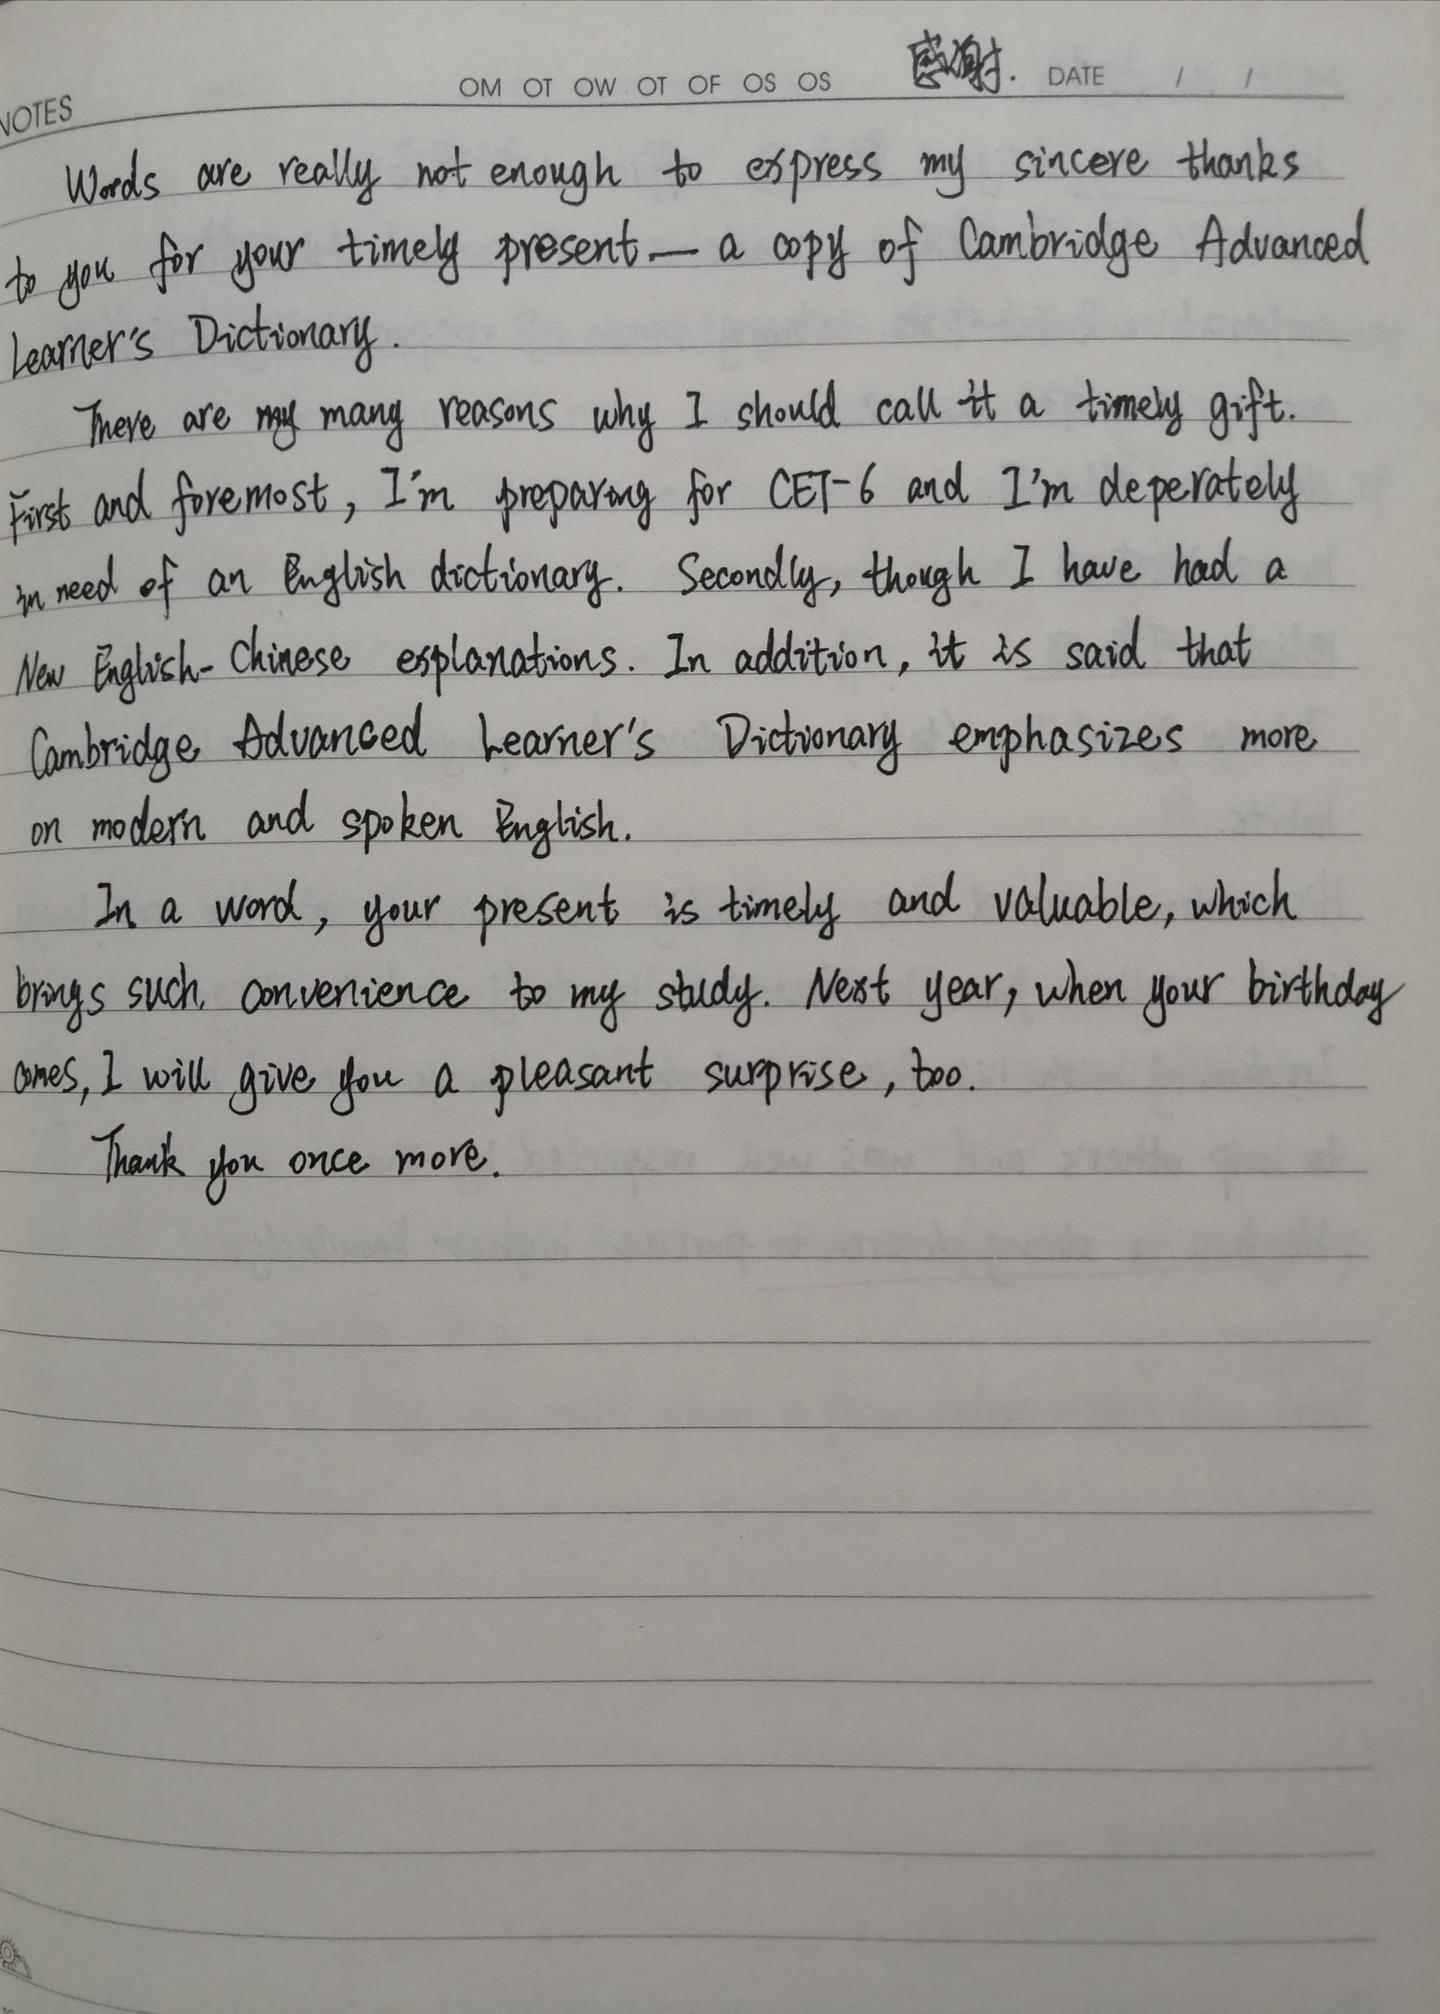 OM OT OW OT OF OS OS 感谢. DATE / /
NOTES
Words are really not enough to express my sincere thanks
to you for your timely present — a copy of Cambridge Advanced
Learner's Dictionary.
There are my many reasons why I should call it a timely gift.
First and foremost, I'm preparing for CET-6 and I'm deperately
in need of an English dictionary. Secondly, though I have had a
New English-Chinese explanations. In addition, it is said that
Cambridge Advanced Learner's Dictionary emphasizes more
on modern and spoken English.
In a word, your present is timely and valuable, which
brings such convenience to my study. Next year, when your birthday
comes, I will give you a pleasant surprise, too.
Thank you once more.